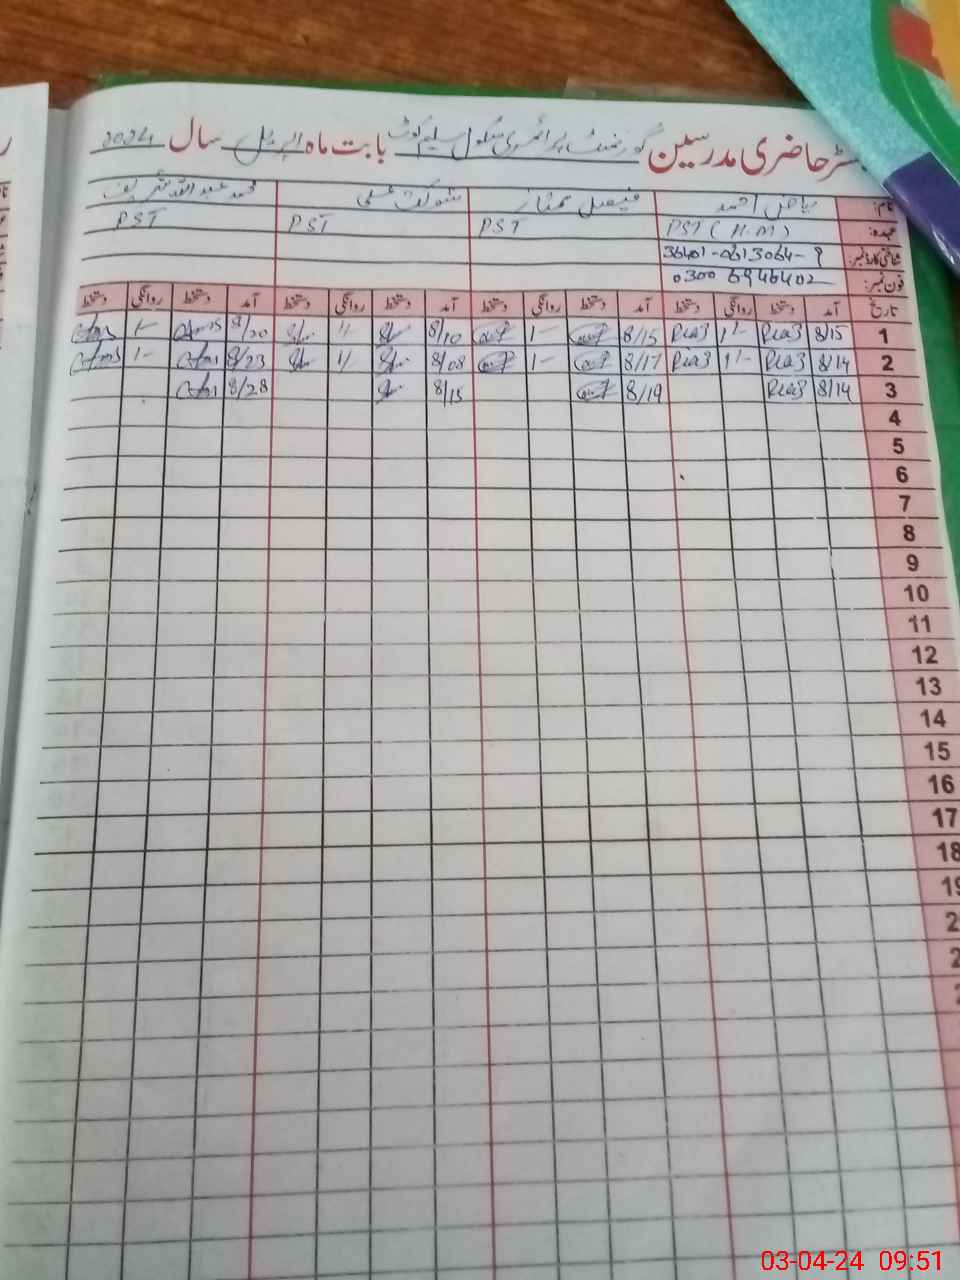 رجسٹر حاضری مدرسین گورنمنٹ پرائمری سکول سلیم کوٹ بابت ماہ اپریل سال 2024
نام: ریاض احمد فیصل ممتاز شوکت علی محمد عبداللہ شریف
عہدہ: PST (H.M) PST PST PST
شناختی کارڈ نمبر: 36401-0613064-9
فون نمبر: 0300 6946402
تاریخ آمد دستخط روانگی دستخط آمد دستخط روانگی دستخط آمد دستخط روانگی دستخط آمد دستخط روانگی دستخط
1 8/15 Riaz 1/- Riaz 8/15 1/- 8/10 1/- 8/20 1/-
2 8/14 Riaz 1/- Riaz 8/17 1/- 8/08 1/- 8/23 1/-
3 8/14 Riaz 8/19 8/15 8/28
4
5
6
7
8
9
10
11
12
13
14
15
16
17
18
03-04-24 09:51